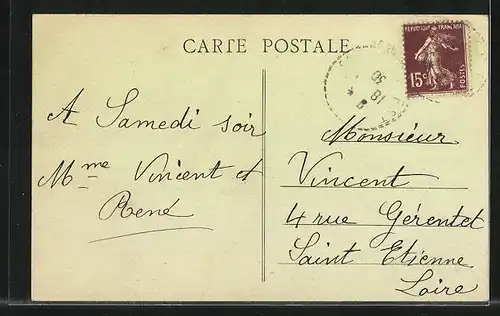 CARTE POSTALE
REPUBLIQUE FRANÇAISE
15c
POSTES
18
30
A Samedi soir
Mme Vincent et
René
Monsieur
Vincent
4 rue Gérentet
Saint Etienne
Loire